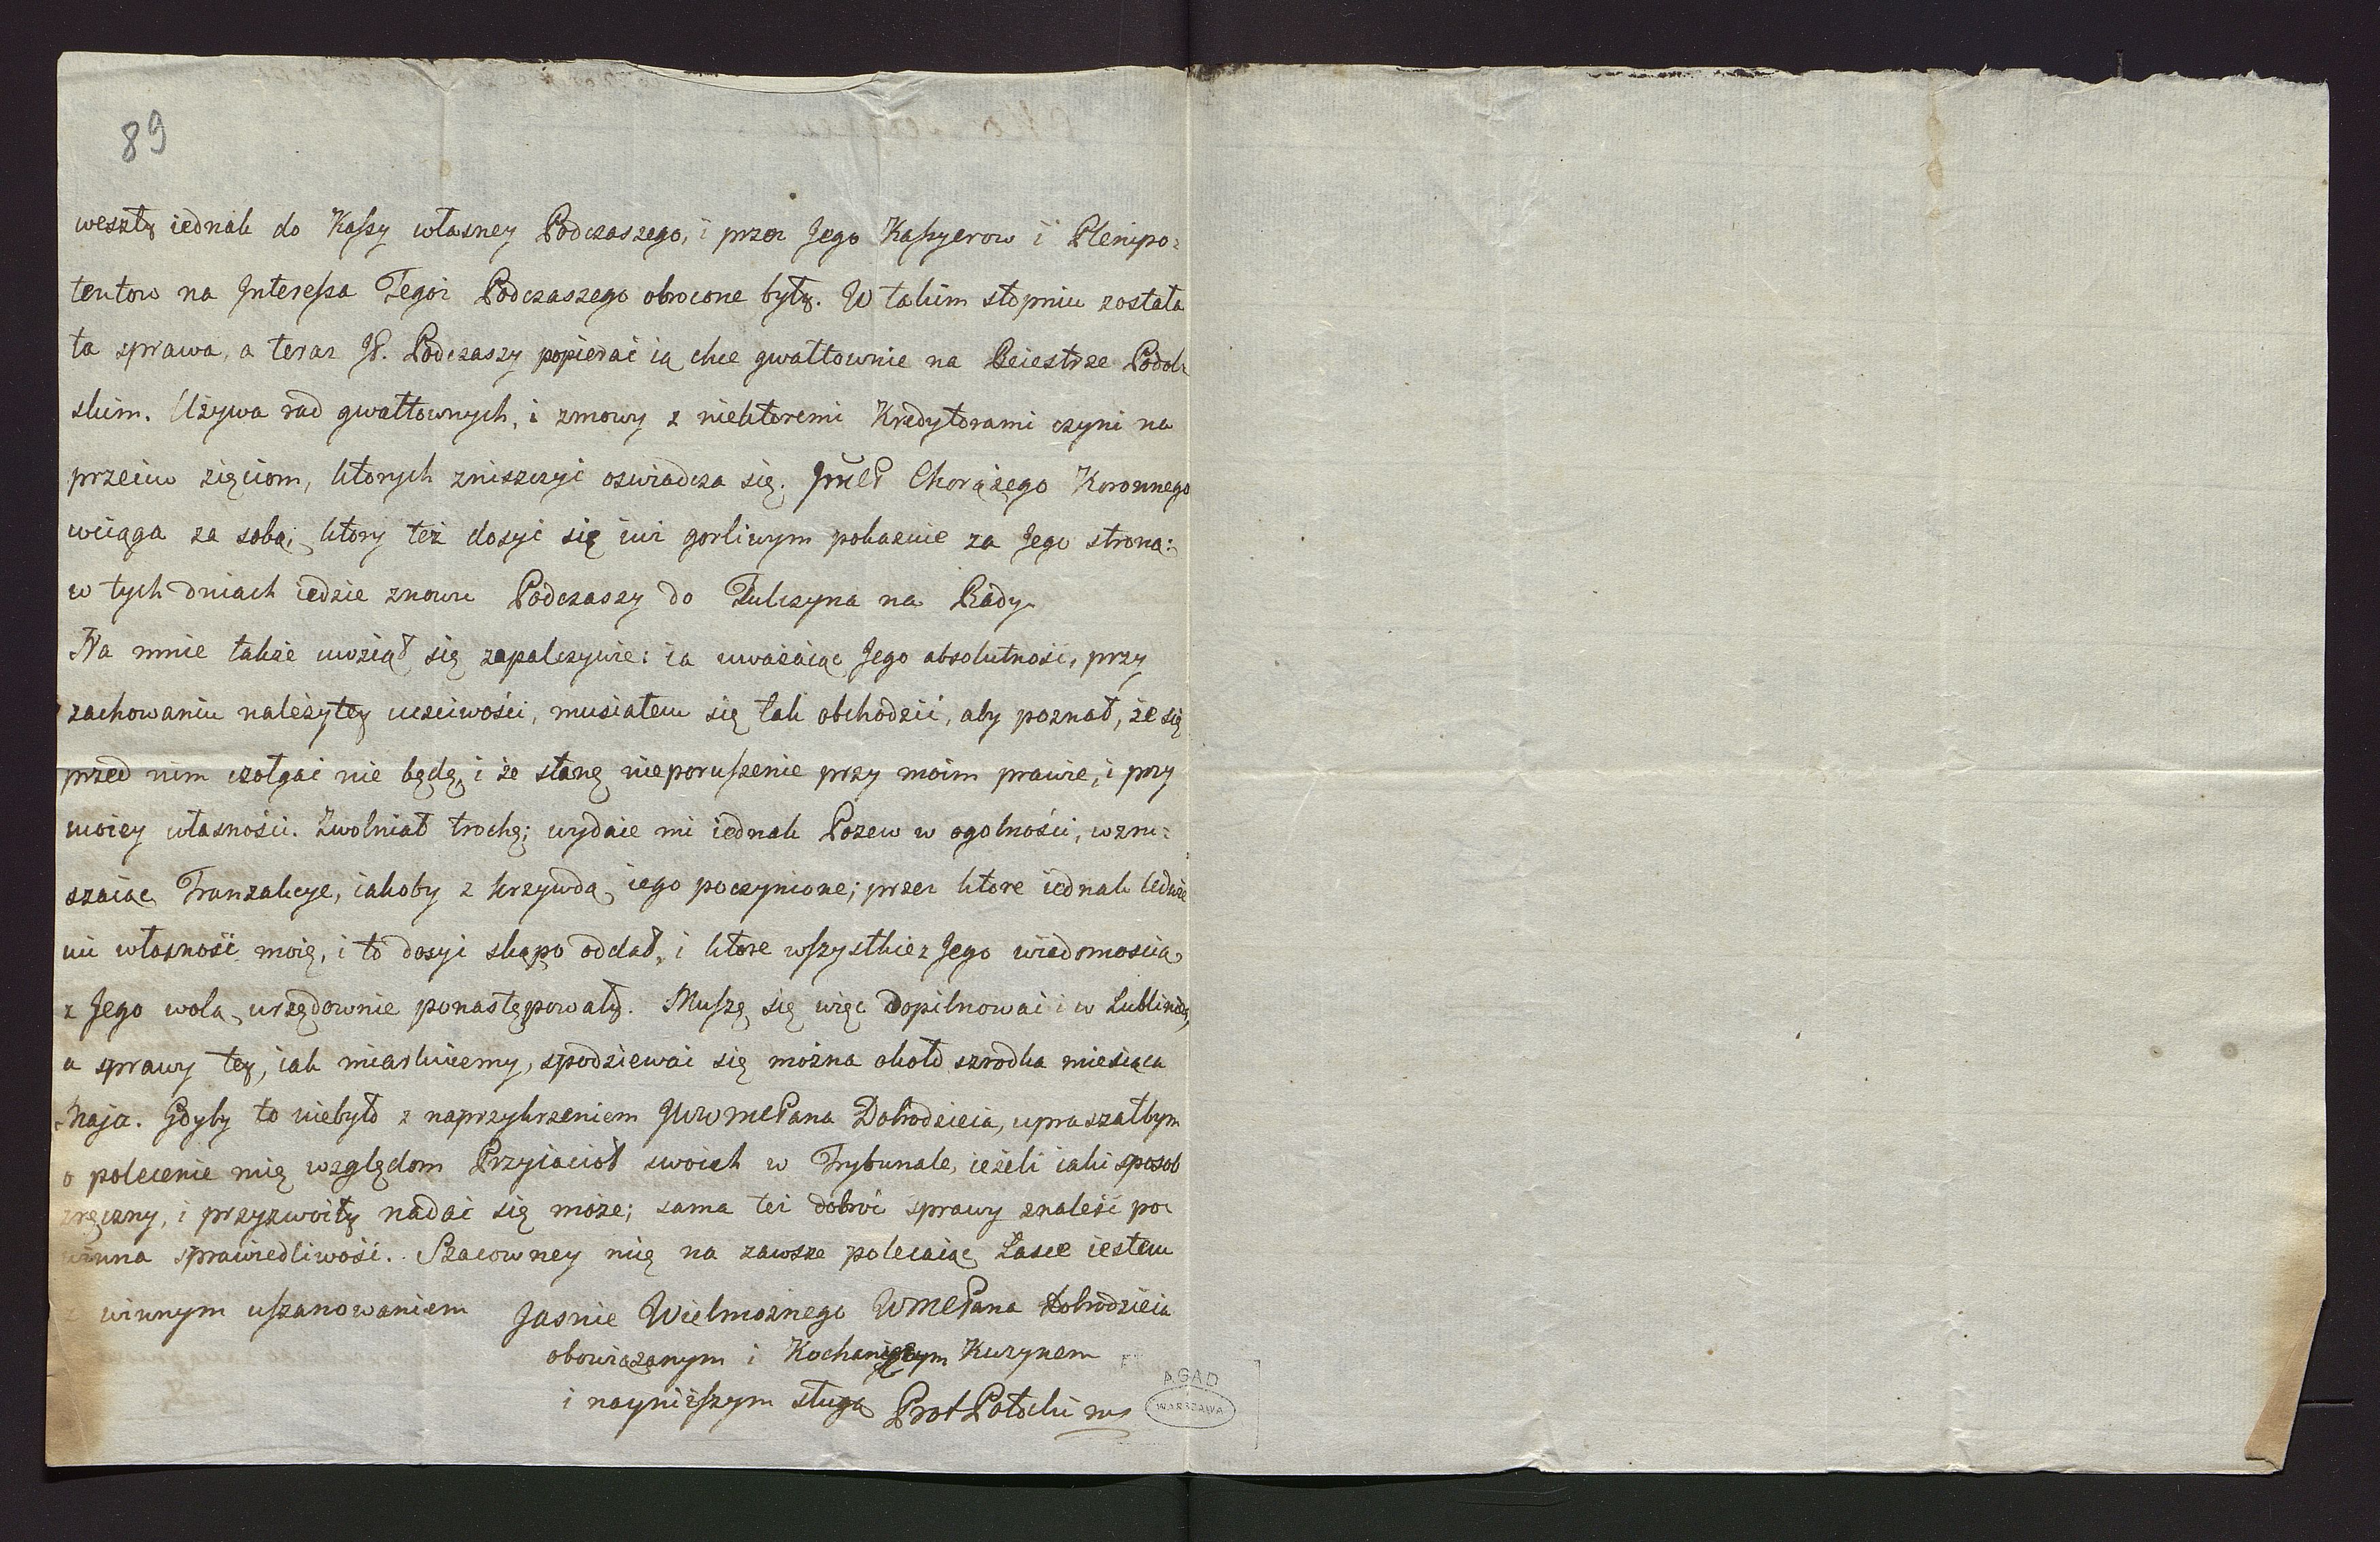 89
weszły iednak do Kaſsy własney Podczaszego, i przez Jego Kaſsyerow i Plenipo-
tentow na Intereſsa Tegoż Podczaszego obrocone były. W takim stopniu została
ta sprawa, a teraz JP. Podczaszy popierać ią chce gwałtownie na Reiestrze Podol-
skim. Używa rad gwałtownych, i zmowy z niektoremi Kredytorami czyni na
przeciw zięciom, ktorych zniszczyć oswiadcza się. JmćP Chorążego Koronnego
wciąga za sobą; ktory też dosyć się iuż gorliwym pokazuie za Jego stroną:
w tych dniach iedzie znowu Podczaszy do Tulczyna na Rady.
Na mnie także uwziął się zapalczywie: ia uważaiąc Jego absolutność, przy
zachowaniu należytey ucściwości, musiałem się tak obchodzić, aby poznał, że się
przed nim czołgać nie będę, i że stanę nieporuſzenie przy moim prawie, i przy
moiey własności. Zwolniał trochę; wydaie mi iednak Pozew w ogolności, wzru-
szaiąc Tranzakcye, iakoby z krzywdą iego poczynione; przez ktore iednak ledwie
mi własność moię, i to dosyć skąpo oddał, i ktore wſzystkie z Jego wiadomoscią
z Jego wolą urzędownie ponastępowały. Muſzę się więc dopilnować i w Lublinie,
a sprawy tey, iak miarkuiemy, spodziewać się można około szrodka miesiąca
Maja. Gdyby to niebyło z naprzykrzeniem JWWMCPana Dobrodzieia, upraszałbym
o polecenie mię względom Przyiacioł swoich w Trybunale, ieżeli iaki sposob
zręczny, i przyzwoity nadać się może; sama też dobroć sprawy znaleść po-
winna sprawiedliwość. Szacowney mię na zawsze polecaiąc Łasce iestem
z winnym uſzanowaniem Jasnie Wielmożnego WMCPana Dobrodzieia
obowiązanym i Kochaiącym Kuzynem
i nayniżſzym sługą Prot Potocki mp
AGAD
WARSZAWA